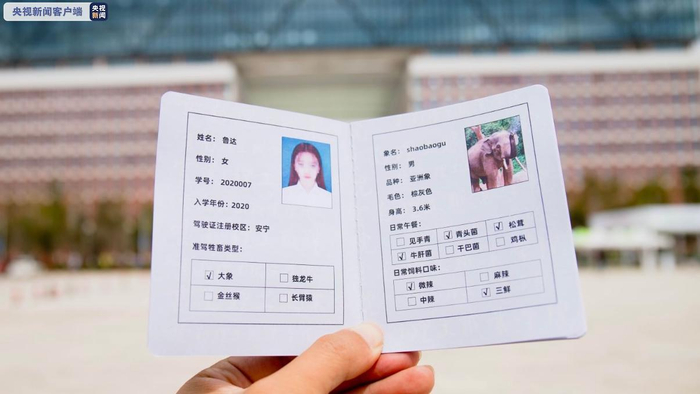 央视新闻客户端
央视
新闻
姓名： 鲁达
性别： 女
学号： 2020007
入学年份：2020
驾驶证注册校区：安宁
准驾牲畜类型：
√ 大象
独龙牛
金丝猴
长臂猿
象名： shaobaogu
性别： 男
品种： 亚洲象
毛色： 棕灰色
身高： 3.6米
日常午餐：
见手青
√ 青头菌
√ 松茸
√ 牛肝菌
干巴菌
鸡枞
日常饲料口味：
√ 微辣
麻辣
中辣
√ 三鲜